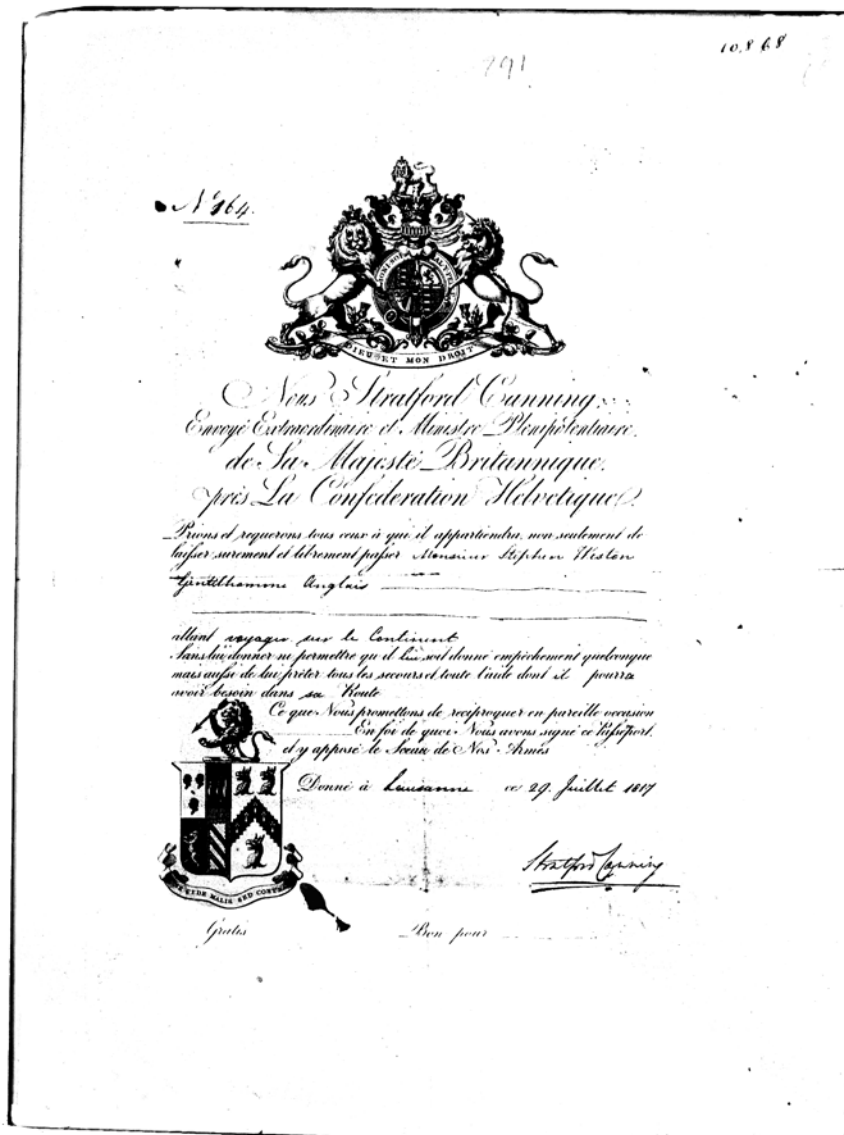 10.8.68
291
No 164.
HONI SOIT QUI MAL Y PENSE
DIEU ET MON DROIT
Nous Stratford Canning,
Envoyé Extraordinaire et Ministre Plénipotentiaire,
de Sa Majesté Britannique,
près La Confédération Helvétique.
Prions et requerons tous ceux à qui il appartiendra, non seulement de
laisser surement et librement passer Monsieur Stephen Weston
Gentilhomme Anglais
allant voyager sur le Continent
Sans lui donner ni permettre qu'il lui soit donné empêchement quelconque
mais aussi de lui prêter tous les secours et toute l'aide dont il pourra
avoir besoin dans sa Route
Ce que Nous promettons de réciproquer en pareille occasion
En foi de quoi Nous avons signé ce Passeport,
et y apposé le Sceau de Nos Armes
Donné à Lausanne ce 29. Juillet 1817
Stratford Canning
NE CEDE MALIS SED CONTRA
Gratis
Bon pour